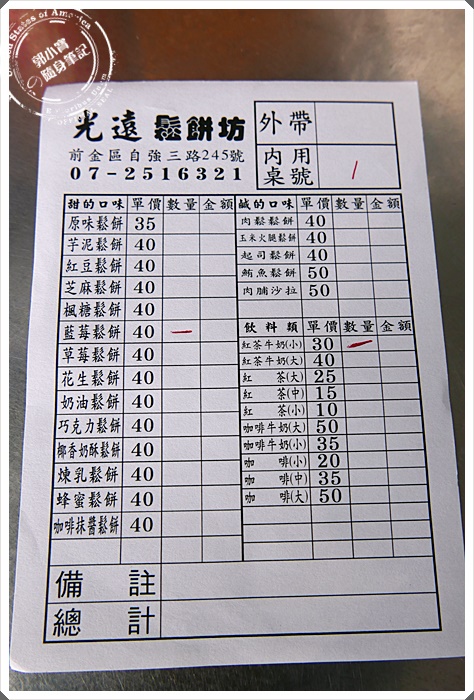 郭小寶
の隨身筆記
光遠 鬆餅坊
前金區自強三路245號
07-2516321
外帶
內用桌號 1
甜的口味 單價 數量 金額
原味鬆餅 35
芋泥鬆餅 40
紅豆鬆餅 40
芝麻鬆餅 40
楓糖鬆餅 40
藍莓鬆餅 40 一
草莓鬆餅 40
花生鬆餅 40
奶油鬆餅 40
巧克力鬆餅 40
椰香奶酥鬆餅 40
煉乳鬆餅 40
蜂蜜鬆餅 40
咖啡抹醬鬆餅 40
鹹的口味 單價 數量 金額
肉鬆鬆餅 40
玉米火腿鬆餅 40
起司鬆餅 40
鮪魚鬆餅 50
肉脯沙拉 50
飲料類 單價 數量 金額
紅茶牛奶(小) 30 一
紅茶牛奶(大) 40
紅 茶(大) 25
紅 茶(中) 15
紅 茶(小) 10
咖啡牛奶(大) 50
咖啡牛奶(小) 35
咖 啡(小) 20
咖 啡(中) 35
咖 啡(大) 50
備 註
總 計